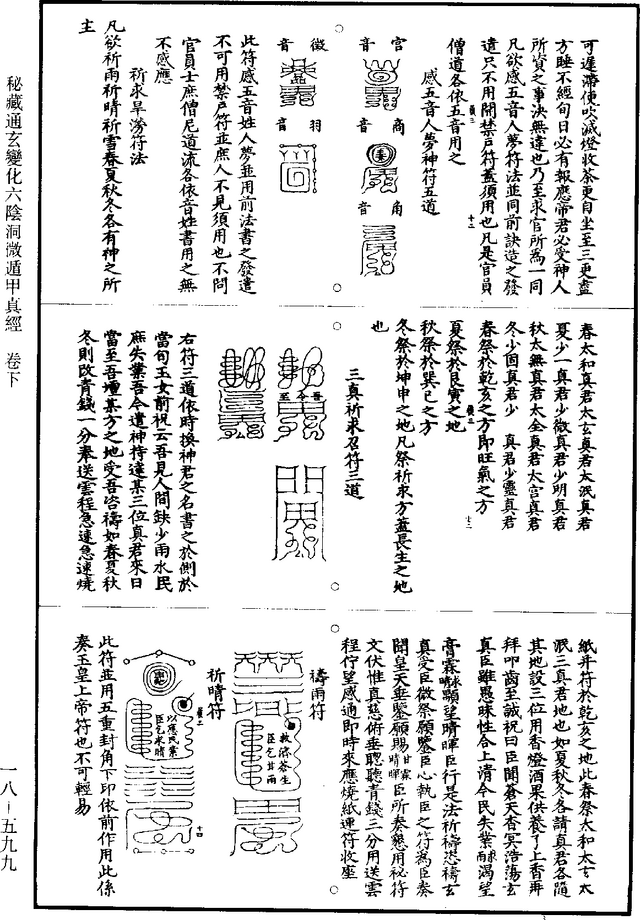 可遲滯使吹滅燈收茶更自坐至三更盡
方睡不經旬日必有報應帝君必受神人
所資之事決無違也乃至求官所爲一同
凡欲感五音人夢符法並同前訣造之發
遣只不用開禁戶符蓋須用也凡是官員
僧道各依五音用之
感五音人夢神符五道
宮音
商音
角音
徵音
羽音
此符感五音姓人夢並用前法書之發遣
不可用禁戶符並庶人不見須用也不問
官員士庶僧尼道流各依音姓書用之無
不感應
祈求旱澇符法
凡欲祈雨祈晴祈雪春夏秋冬各有神之所
主
春太和真君太玄真君太泯真君
夏少一真君少微真君少明真君
秋太無真君太全真君太宫真君
冬少固真君少 真君少靈真君
春祭於乾亥之方即旺氣之方
夏祭於艮寅之地
秋祭於巽巳之方
冬祭於坤申之地凡祭祈求方蓋長生之地
也
三真祈求召符三道
吾今至
右符三道依時換神君之名書之於側於
當旬玉女前祝云吾見人間缺少雨水民
庶失業吾今遣神持達某三位真君來日
當至吾壇某方之地受吾咨禱如春夏秋
冬則改青錢一分奉送雲程急速急速燒
紙并符於乾亥之地此春祭太和太玄太
泯三真君地也如夏秋冬各請真君各隨
其地設三位用香燈酒果供養了上香再
拜叩齒至誠祝曰臣聞蒼天杳冥浩蕩玄
真臣雖愚昧性合上清今民失業雨澤渴望
膏霖晴顯望晴暉臣行是法祈禱恐禱玄
真受臣微祭願鑒臣心執臣之符為臣奏
聞皇天垂鑒願賜甘霖晴暉臣所奏懇用祕符
文伏惟真慈俯垂聰聽青錢三分用送雲
程佇望感通即時來應燒紙連符收座
禱雨符
救濟蒼生
臣乞甘雨
祈晴符
以應民業
臣乞求晴
此符並用五重封角下印依前作用此係
奏玉皇上帝符也不可輕易
秘藏通玄變化六陰洞微遁甲真經 卷下
一八－五九九